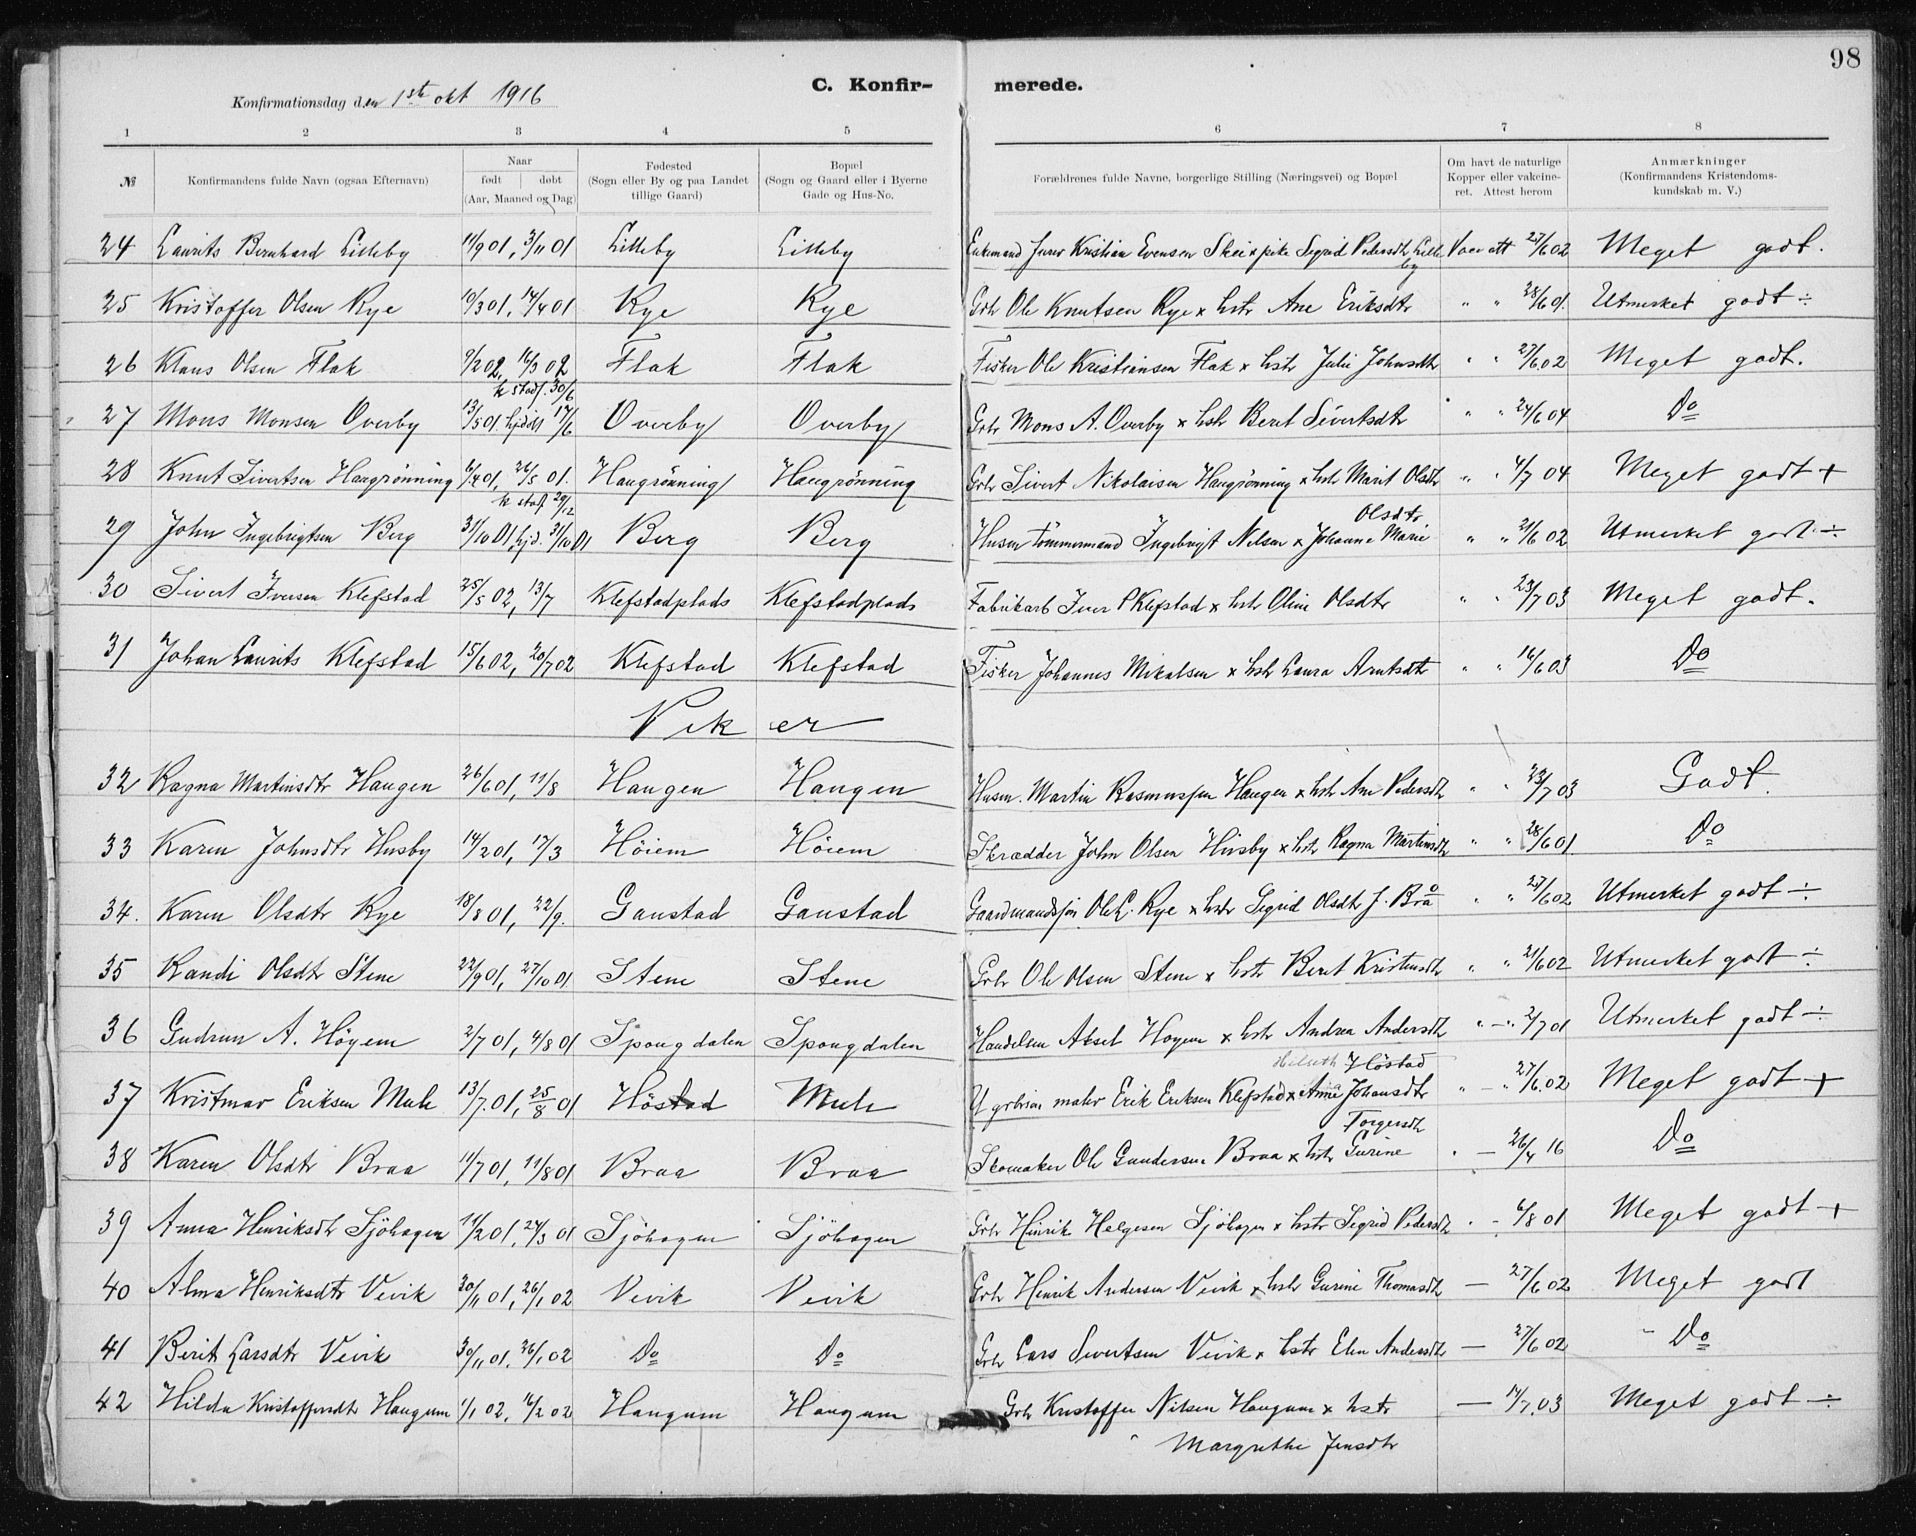 98
Konfirmationsdag den 1ste okt 1916 C. Konfir- merede.
1 2 3 4 5 6 7 8
№ Konfirmandens fulde Navn (ogsaa Efternavn) Naar født døbt (Aar, Maaned og Dag) Fødested (Sogn eller By og paa Landet tillige Gaard) Bopæl (Sogn og Gaard eller i Byerne Gade og Hus-No. Forældrenes fulde Navne, borgerlige Stilling (Næringsvei) og Bopæl Om havt de naturlige Kopper eller vakcineret. Attest herom Anmærkninger (Konfirmandens Kristendomskundskab m. V.)
24 Laurits Bernhard Lilleby 11/9 01, 3/11 01 Lilleby Lilleby Enkemand Kristian Evensen x pike Sigrid Pedersdtr Lilleby Vac att 27/6 02 Meget godt.
25 Kristoffer Olsen Rye 10/3 01, 14/4 01 Rye Rye Grbr Ole Knutsen Rye x hstr Ane Eriksdtr " " 28/6 01. Utmerket godt ÷
26 Klaus Olsen Flak 9/2 02, 16/3 02 Flak Flak Fisker Ole Kristiansen Flak x hstr Julie Johnsdtr " " 27/6 02 Meget godt.
27 Mons Monsen Overby 13/5 01 hjdøbt 17/6 k stadf. 30/6 Overby Overby Grbr Mons A. Overby x hstr Berit Sivertsdtr " " 24/6 04 Do
28 Knut Sivertsen Haugrönning 6/4 01, 26/5 01. Haugrönning Haugrönning Grbr Sivert Nikolaisen Haugrönning x hstr Marit Olsdtr " " 4/7 04 Meget godt +
29 John Ingebrigtsen Berg 31/10 01 hjd. 31/10 01 k staf 29/12 Berg Berg Husm tömmermand Ingebrigt Nilsen x Johanne Marie Olsdtr " " 21/6 02 Utmerket godt ÷
30 Sivert Iversen Klefstad 25/5 02, 13/7 Klefstadplads Klefstadplads Fabrikarb Iver P Klefstad x hstr Oline Olsdtr " " 23/7 03 Meget godt.
31 Johan Laurits Klefstad 15/6 02, 20/7 02 Klefstad Klefstad Fisker Johannes Mikalsen x hstr Laura Arntsdtr " " 16/6 03 Do
Piker
32 Ragna Martinsdtr Haugen 26/6 01, 11/8 Haugen Haugen Husm. Martin Rasmussen Haugen x hstr Ane Pedersdtr " " 23/7 03 Godt.
33 Karen Johnsdtr Husby 14/2 01, 17/3 Höiem Höiem Skrædder John Olsen Husby x hstr Ragna Martinsdtr " " 28/6 01 Do
34. Karen Olsdtr Rye 18/8 01, 22/9. Ganstad Ganstad Gaardmandssøn Ole L. Rye x hstr Sigrid Olsdtr J. Brå " " 27/6 02 Utmerket godt ÷
35 Randi Olsdtr Stene 22/9 01, 27/10 01 Stene Stene Grbr Ole Olsen Stene x hstr Berit Kristensdtr " " 21/6 02 Utmerket godt ÷
36 Gudrun A. Höyem 2/7 01, 4/8 01 Spongdalen Spongdalen Handelsm Aksel Höyem x hstr Andrea Andersdtr " — " 2/7 01 Utmerket godt ÷
37 Kristmar Eriksen Mule 13/7 01, 25/8 01 Höstad Mule maler Erik Eriksen Klefstad x Anne Johansdtr Höstad " — " 27/6 02 Meget godt +
38 Karen Olsdtr Braa 11/7 01, 11/8 01 Braa Braa Skomaker Ole Gundersen Braa x hstr Gurine Torgersdtr " — 26/4 16 Do
39 Anna Henriksdtr Sjöhagen 11/2 01, 24/3 01 Sjöhagen Sjöhagen Grbr Hinrik Helgesen Sjöhagen x hstr Sigrid Pedersdtr " - 6/8 01 Meget godt +
40 Alma Henriksdtr Vevik 30/11 01, 26/1 02 Vevik Vevik Grbr Henrik Andersen Vevik x hstr Gurine Thomasdtr — 27/6 02 Meget godt
41 Berit Larsdtr Vevik 30/11 01, 26/1 02 Do Do Grbr Lars Sivertsen Vevik x hstr Elen Andersdtr — 27/6 02 " Do
42 Hilda Kristoffersdtr Haugum 1/1 02, 16/2 02 Haugum Haugum Grbr Kristoffer Nilsen Haugum x hstr Margrethe Jensdtr — 14/7 03 Meget godt ÷